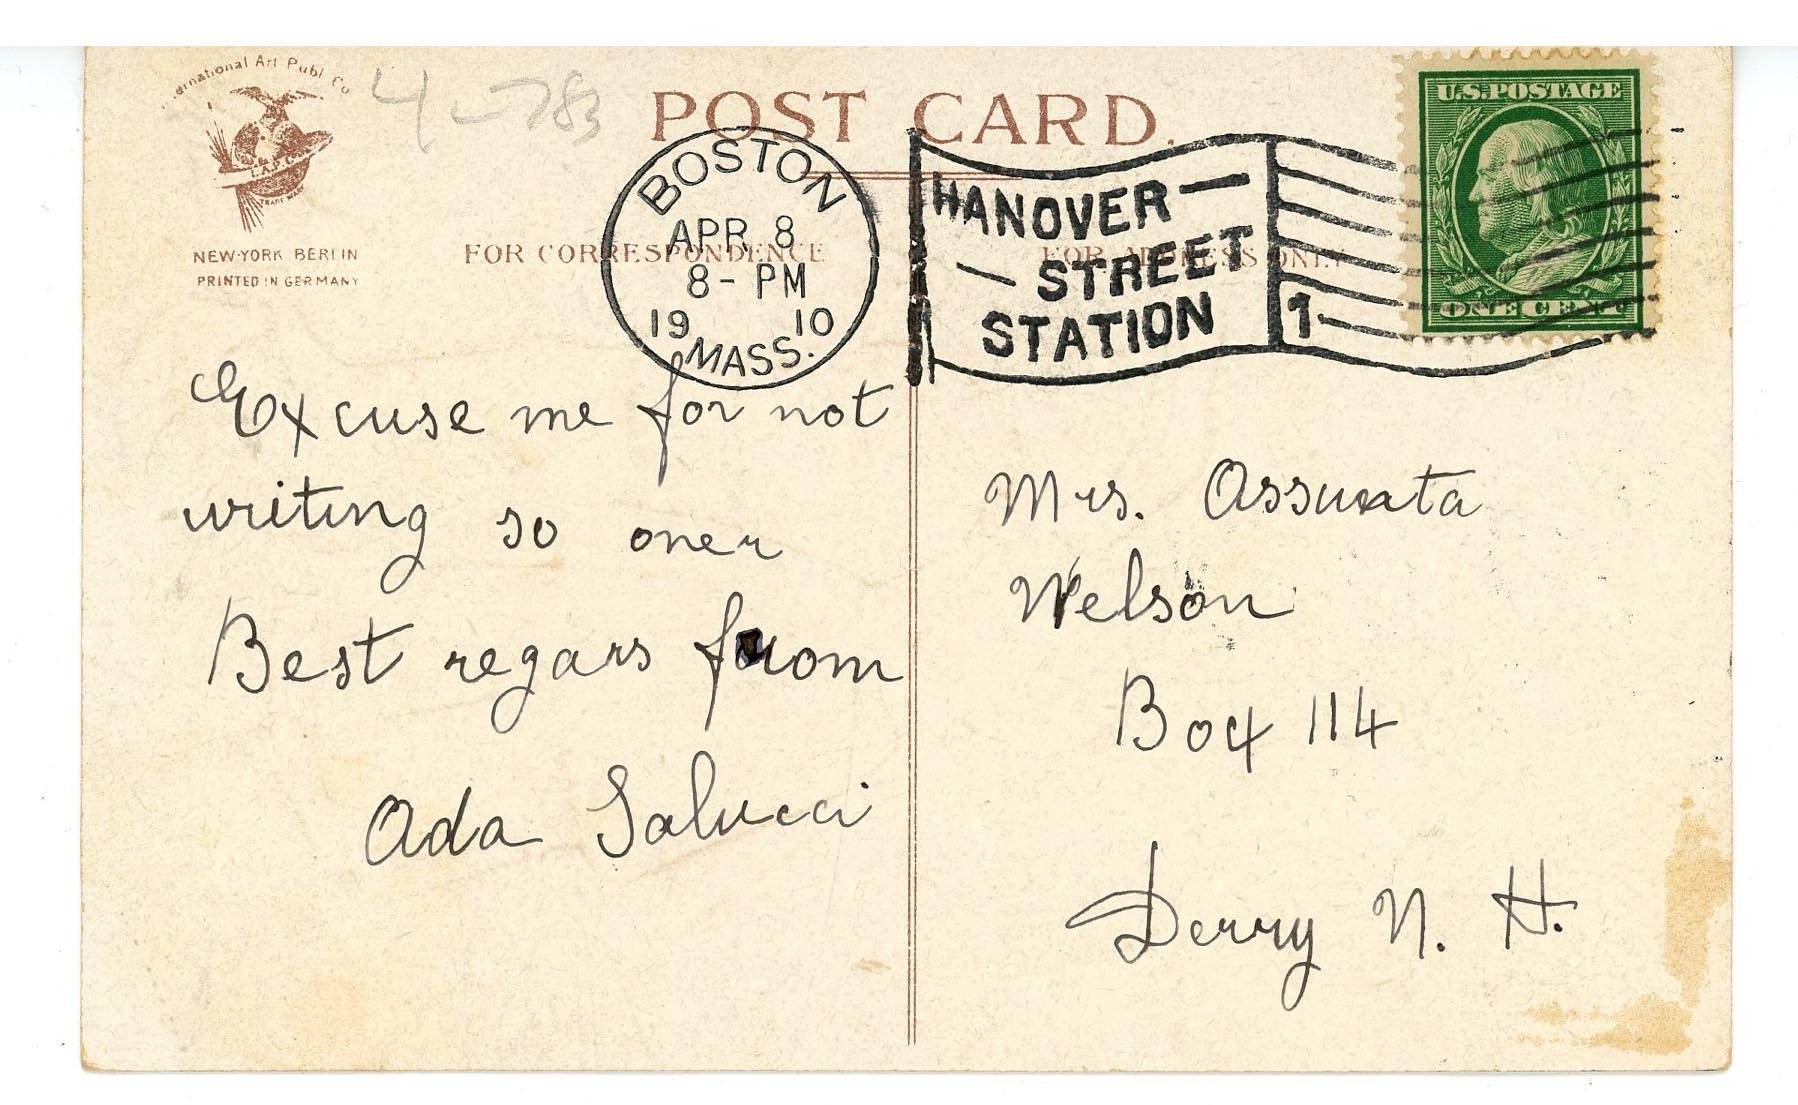 International Art Publ Co
4-783
POST CARD.
I.A.P.Co.
TRADE MARK
NEW-YORK BERLIN
PRINTED IN GERMANY
FOR CORRESPONDENCE
FOR ADDRESS ONLY
BOSTON
APR 8
8-PM
1910
MASS.
HANOVER
STREET
STATION
1
U.S. POSTAGE
ONE CENT
Excuse me for not
writing so oner
Best regars from
Ada Salucci
Mrs. Assunta
Welson
Box 114
Derry N. H.